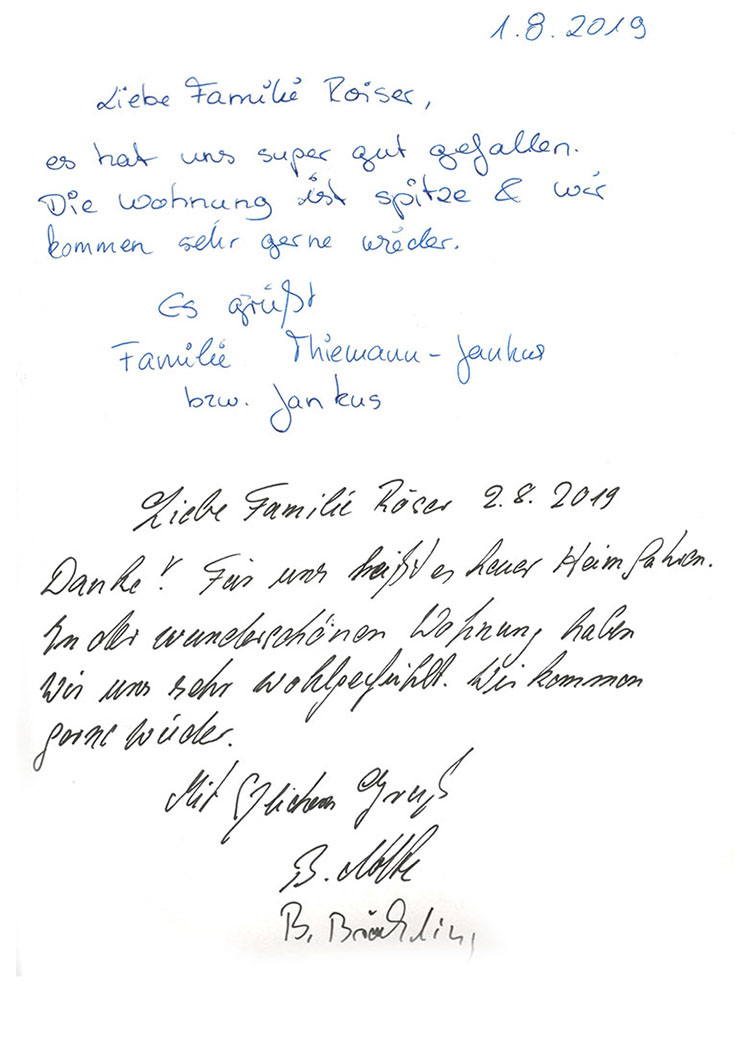 1.8.2019
Liebe Familie Roiser,
es hat uns super gut gefallen.
Die Wohnung ist spitze & wir
kommen sehr gerne wieder.
Es grüßt
Familie Thiemann-Jankus
bzw. Jankus
Liebe Familie Röser 2.8. 2019
Danke! Für uns heißt es heuer Heimfahren.
In der wunderschönen Wohnung haben
wir uns sehr wohlgefühlt. Wir kommen
gerne wieder.
Mit Gruß
B. Nölke
B.